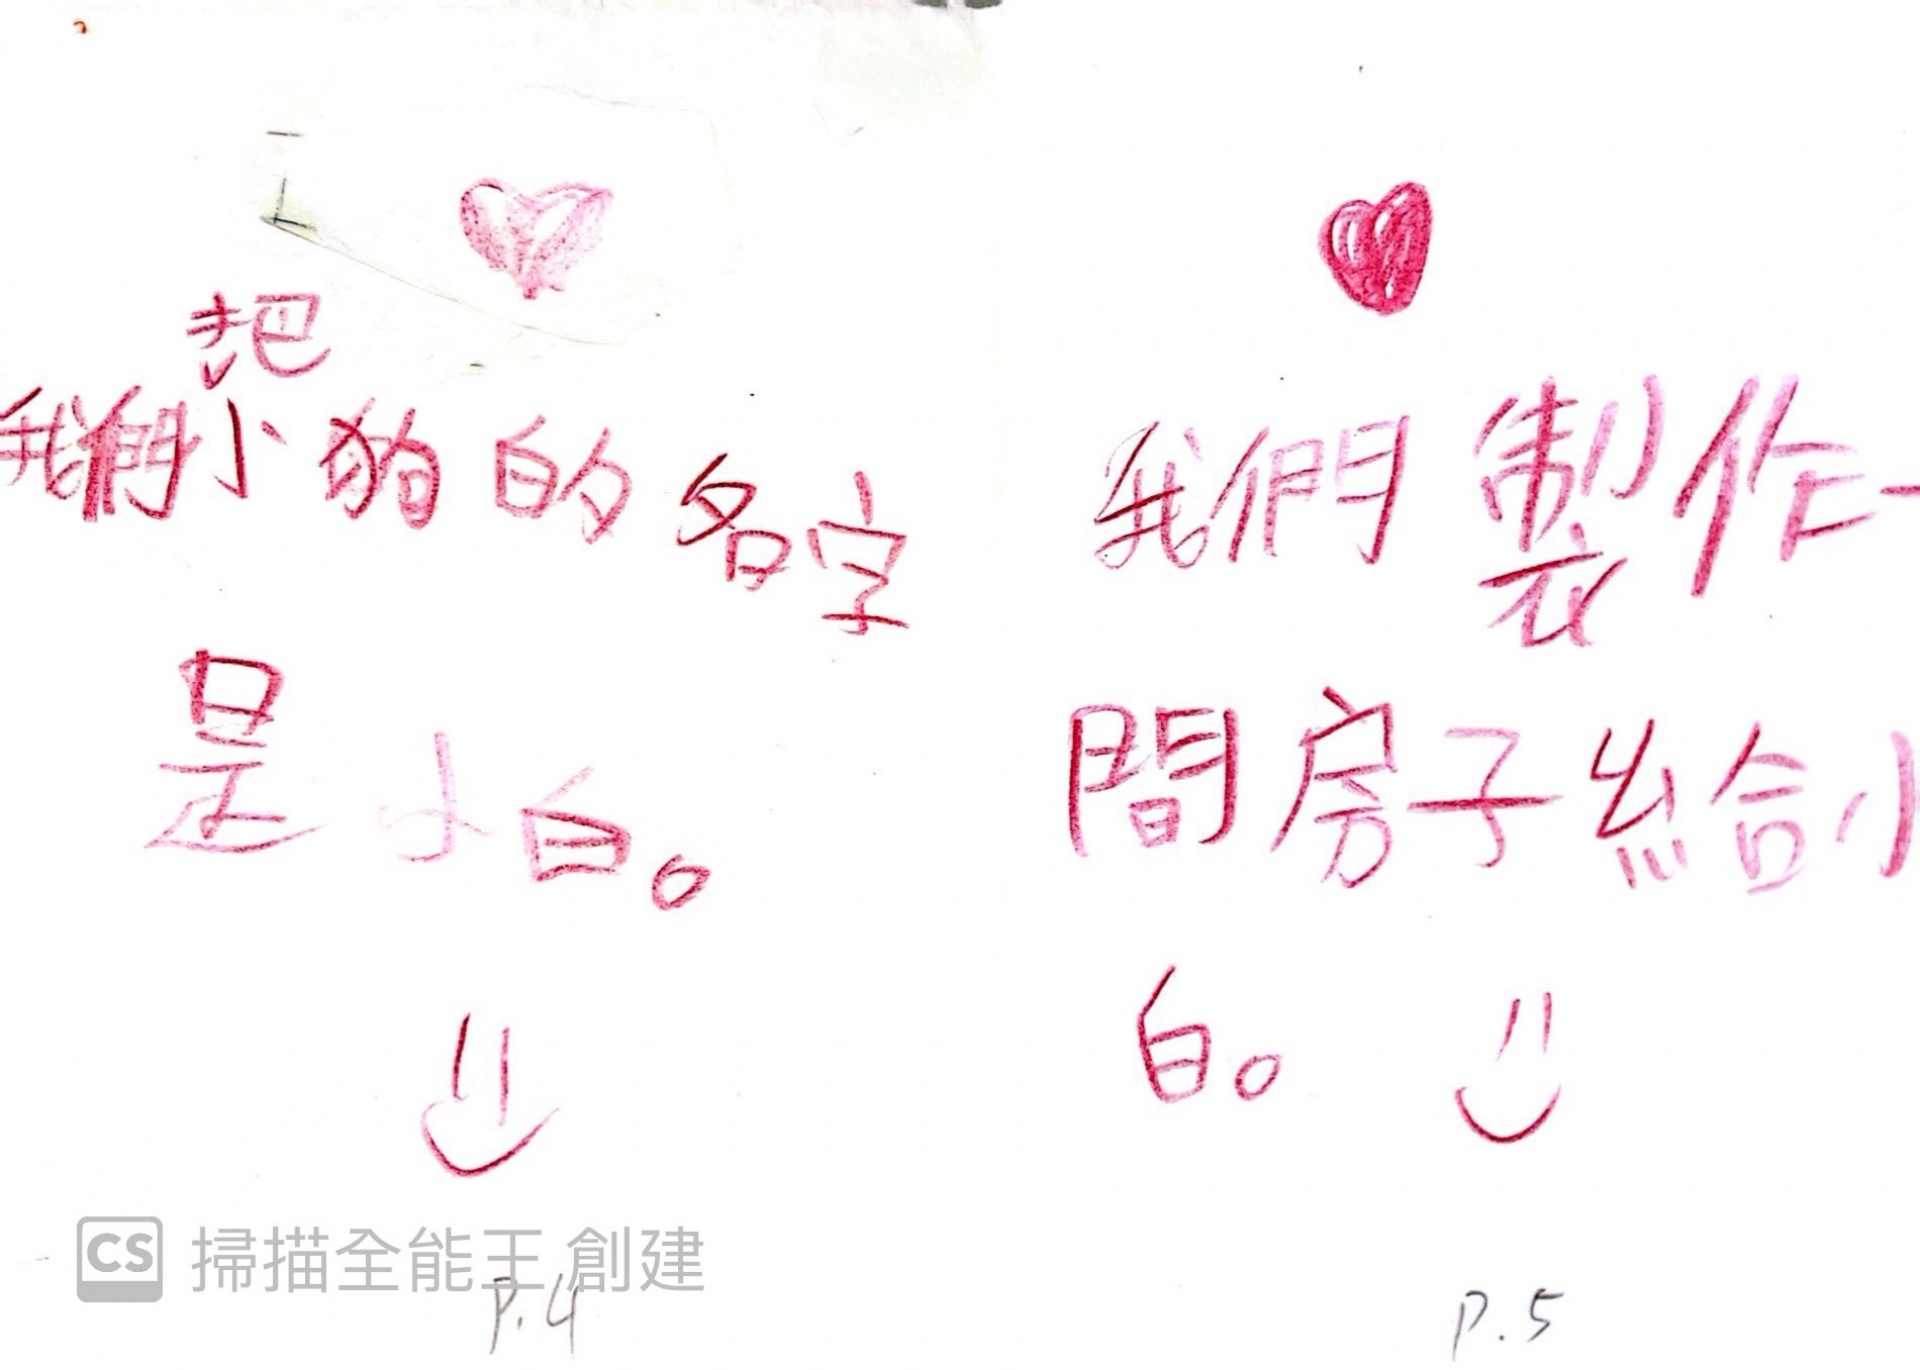 把
我們小狗的名字
是小白。
P.4
我們製作一
間房子給小
白。
P.5
CS 掃描全能王 創建